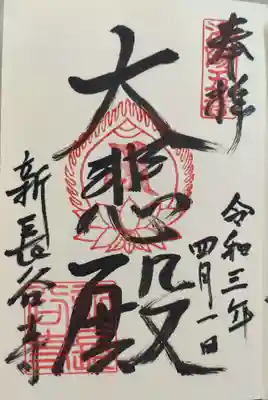 奉拝
令和三年
四月一日
大悲殿
新長谷寺